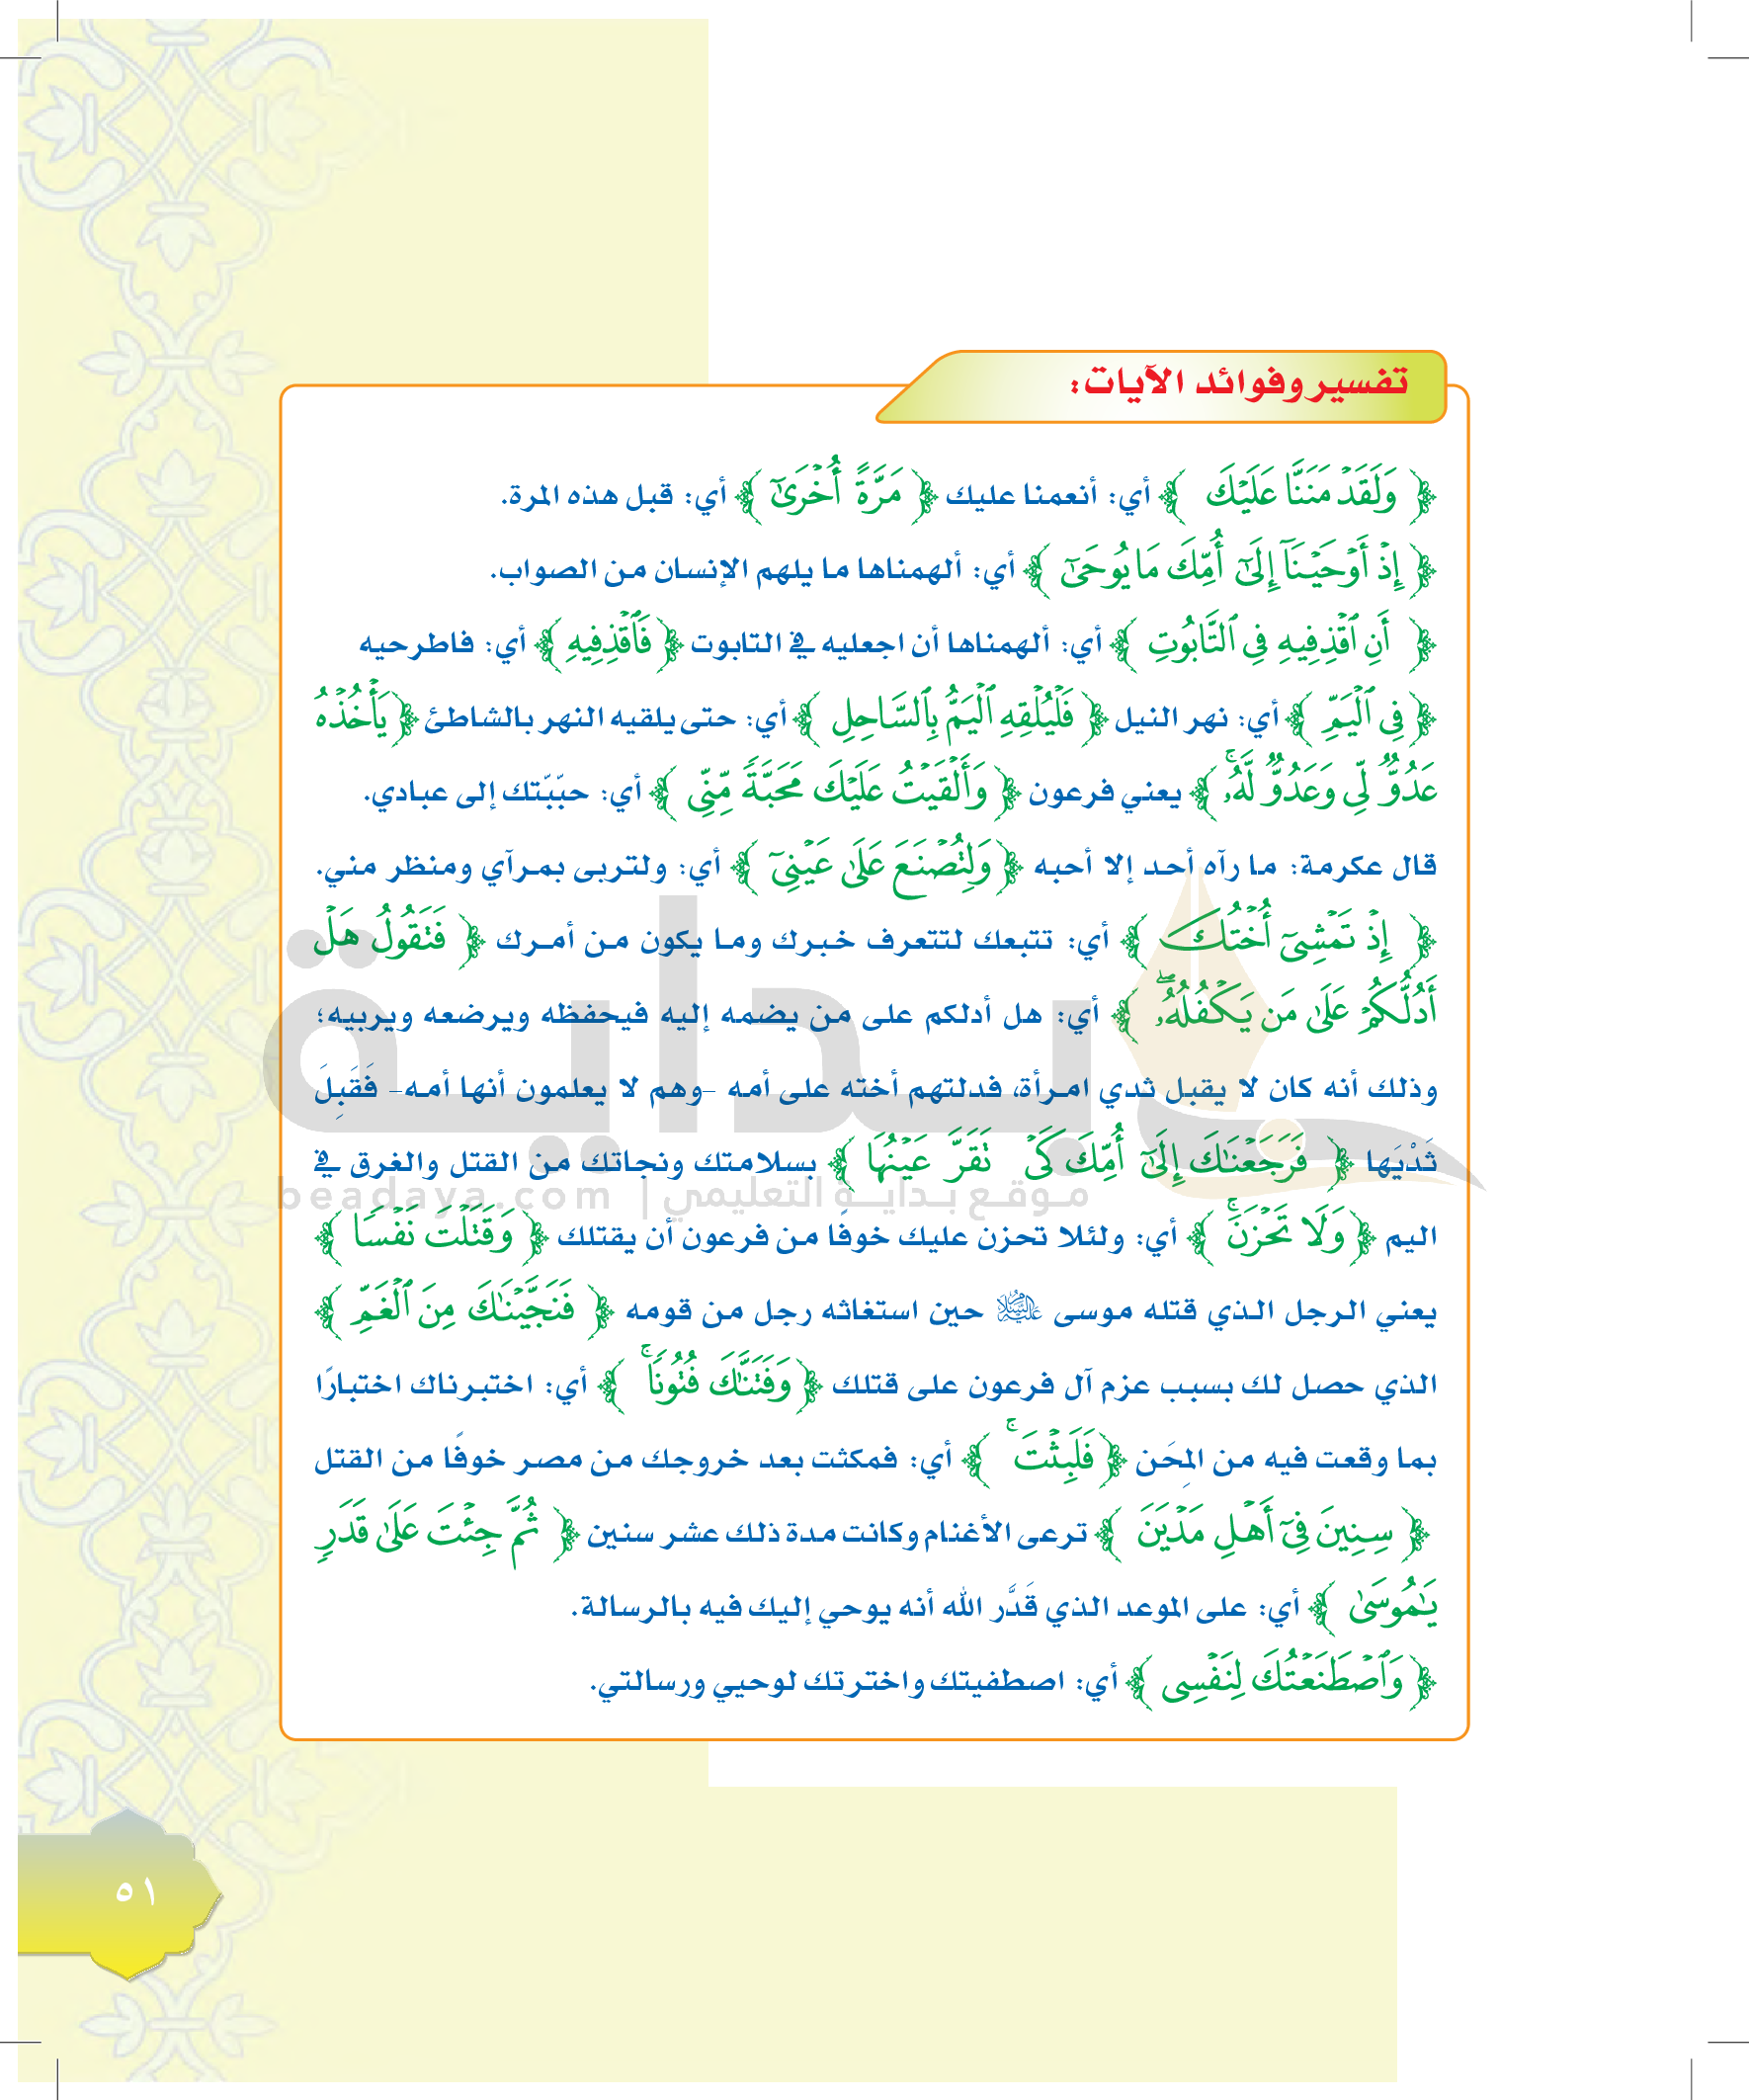 تفسير وفوائد الآيات:
﴿ وَلَقَدْ مَنَنَّا عَلَيْكَ ﴾ أي: أنعمنا عليك ﴿ مَرَّةً أُخْرَىٰٓ ﴾ أي: قبل هذه المرة.
﴿ إِذْ أَوْحَيْنَآ إِلَىٰٓ أُمِّكَ مَا يُوحَىٰٓ ﴾ أي: ألهمناها ما يلهم الإنسان من الصواب.
﴿ أَنِ ٱقْذِفِيهِ فِى ٱلتَّابُوتِ ﴾ أي: ألهمناها أن اجعليه في التابوت ﴿ فَٱقْذِفِيهِ ﴾ أي: فاطرحيه
﴿ فِى ٱلْيَمِّ ﴾ أي: نهر النيل ﴿ فَلْيُلْقِهِ ٱلْيَمُّ بِٱلسَّاحِلِ ﴾ أي: حتى يلقيه النهر بالشاطئ ﴿ يَأْخُذْهُ
عَدُوٌّ لِّى وَعَدُوٌّ لَّهُۥۚ ﴾ يعني فرعون ﴿ وَأَلْقَيْتُ عَلَيْكَ مَحَبَّةً مِّنِّى ﴾ أي: حبّبّتك إلى عبادي.
قال عكرمة: ما رآه أحد إلا أحبه ﴿ وَلِتُصْنَعَ عَلَىٰ عَيْنِىٓ ﴾ أي: ولتربى بمرآي ومنظر مني.
﴿ إِذْ تَمْشِىٓ أُخْتُكَ ﴾ أي: تتبعك لتتعرف خبرك وما يكون من أمرك ﴿ فَتَقُولُ هَلْ
أَدُلُّكُمْ عَلَىٰ مَن يَكْفُلُهُۥۖ ﴾ أي: هل أدلكم على من يضمه إليه فيحفظه ويرضعه ويربيه؛
وذلك أنه كان لا يقبل ثدي امرأة، فدلتهم أخته على أمه -وهم لا يعلمون أنها أمه- فَقَبِلَ
ثَدْيَها ﴿ فَرَجَعْنَٰكَ إِلَىٰٓ أُمِّكَ كَىْ تَقَرَّ عَيْنُهَا ﴾ بسلامتك ونجاتك من القتل والغرق في
اليم ﴿ وَلَا تَحْزَنَۚ ﴾ أي: ولئلا تحزن عليك خوفًا من فرعون أن يقتلك ﴿ وَقَتَلْتَ نَفْسًا ﴾
يعني الرجل الذي قتله موسى عليه السلام حين استغاثه رجل من قومه ﴿ فَنَجَّيْنَٰكَ مِنَ ٱلْغَمِّ ﴾
الذي حصل لك بسبب عزم آل فرعون على قتلك ﴿ وَفَتَنَّٰكَ فُتُونًاۚ ﴾ أي: اختبرناك اختبارًا
بما وقعت فيه من المِحَن ﴿ فَلَبِثْتَۚ ﴾ أي: فمكثت بعد خروجك من مصر خوفًا من القتل
﴿ سِنِينَ فِىٓ أَهْلِ مَدْيَنَ ﴾ ترعى الأغنام وكانت مدة ذلك عشر سنين ﴿ ثُمَّ جِئْتَ عَلَىٰ قَدَرٍ
يَٰمُوسَىٰ ﴾ أي: على الموعد الذي قَدَّر الله أنه يوحي إليك فيه بالرسالة.
﴿ وَٱصْطَنَعْتُكَ لِنَفْسِى ﴾ أي: اصطفيتك واخترتك لوحيي ورسالتي.
بداية
موقع بداية التعليمي | beadaya.com
٥١